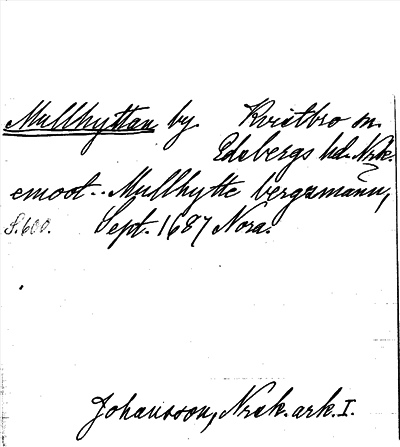 Mullhyttan by. Kvistbro sn.
Edsbergs hd. Nrk.
emoot.. Mullhytte bergzmänn,
S. 600. Sept. 1687 Nora.
Johansson, Nrsk. ark. I.